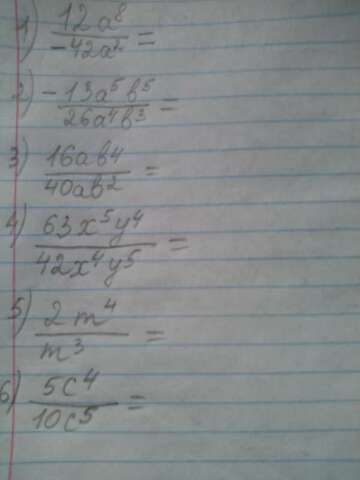 1) 12a⁸/-42a² =
2) -13a⁵b⁵/26a⁴b³ =
3) 16ab⁴/40ab² =
4) 63x⁵y⁴/42x⁴y⁵ =
5) 2m⁴/m³ =
6) 5c⁴/10c⁵ =